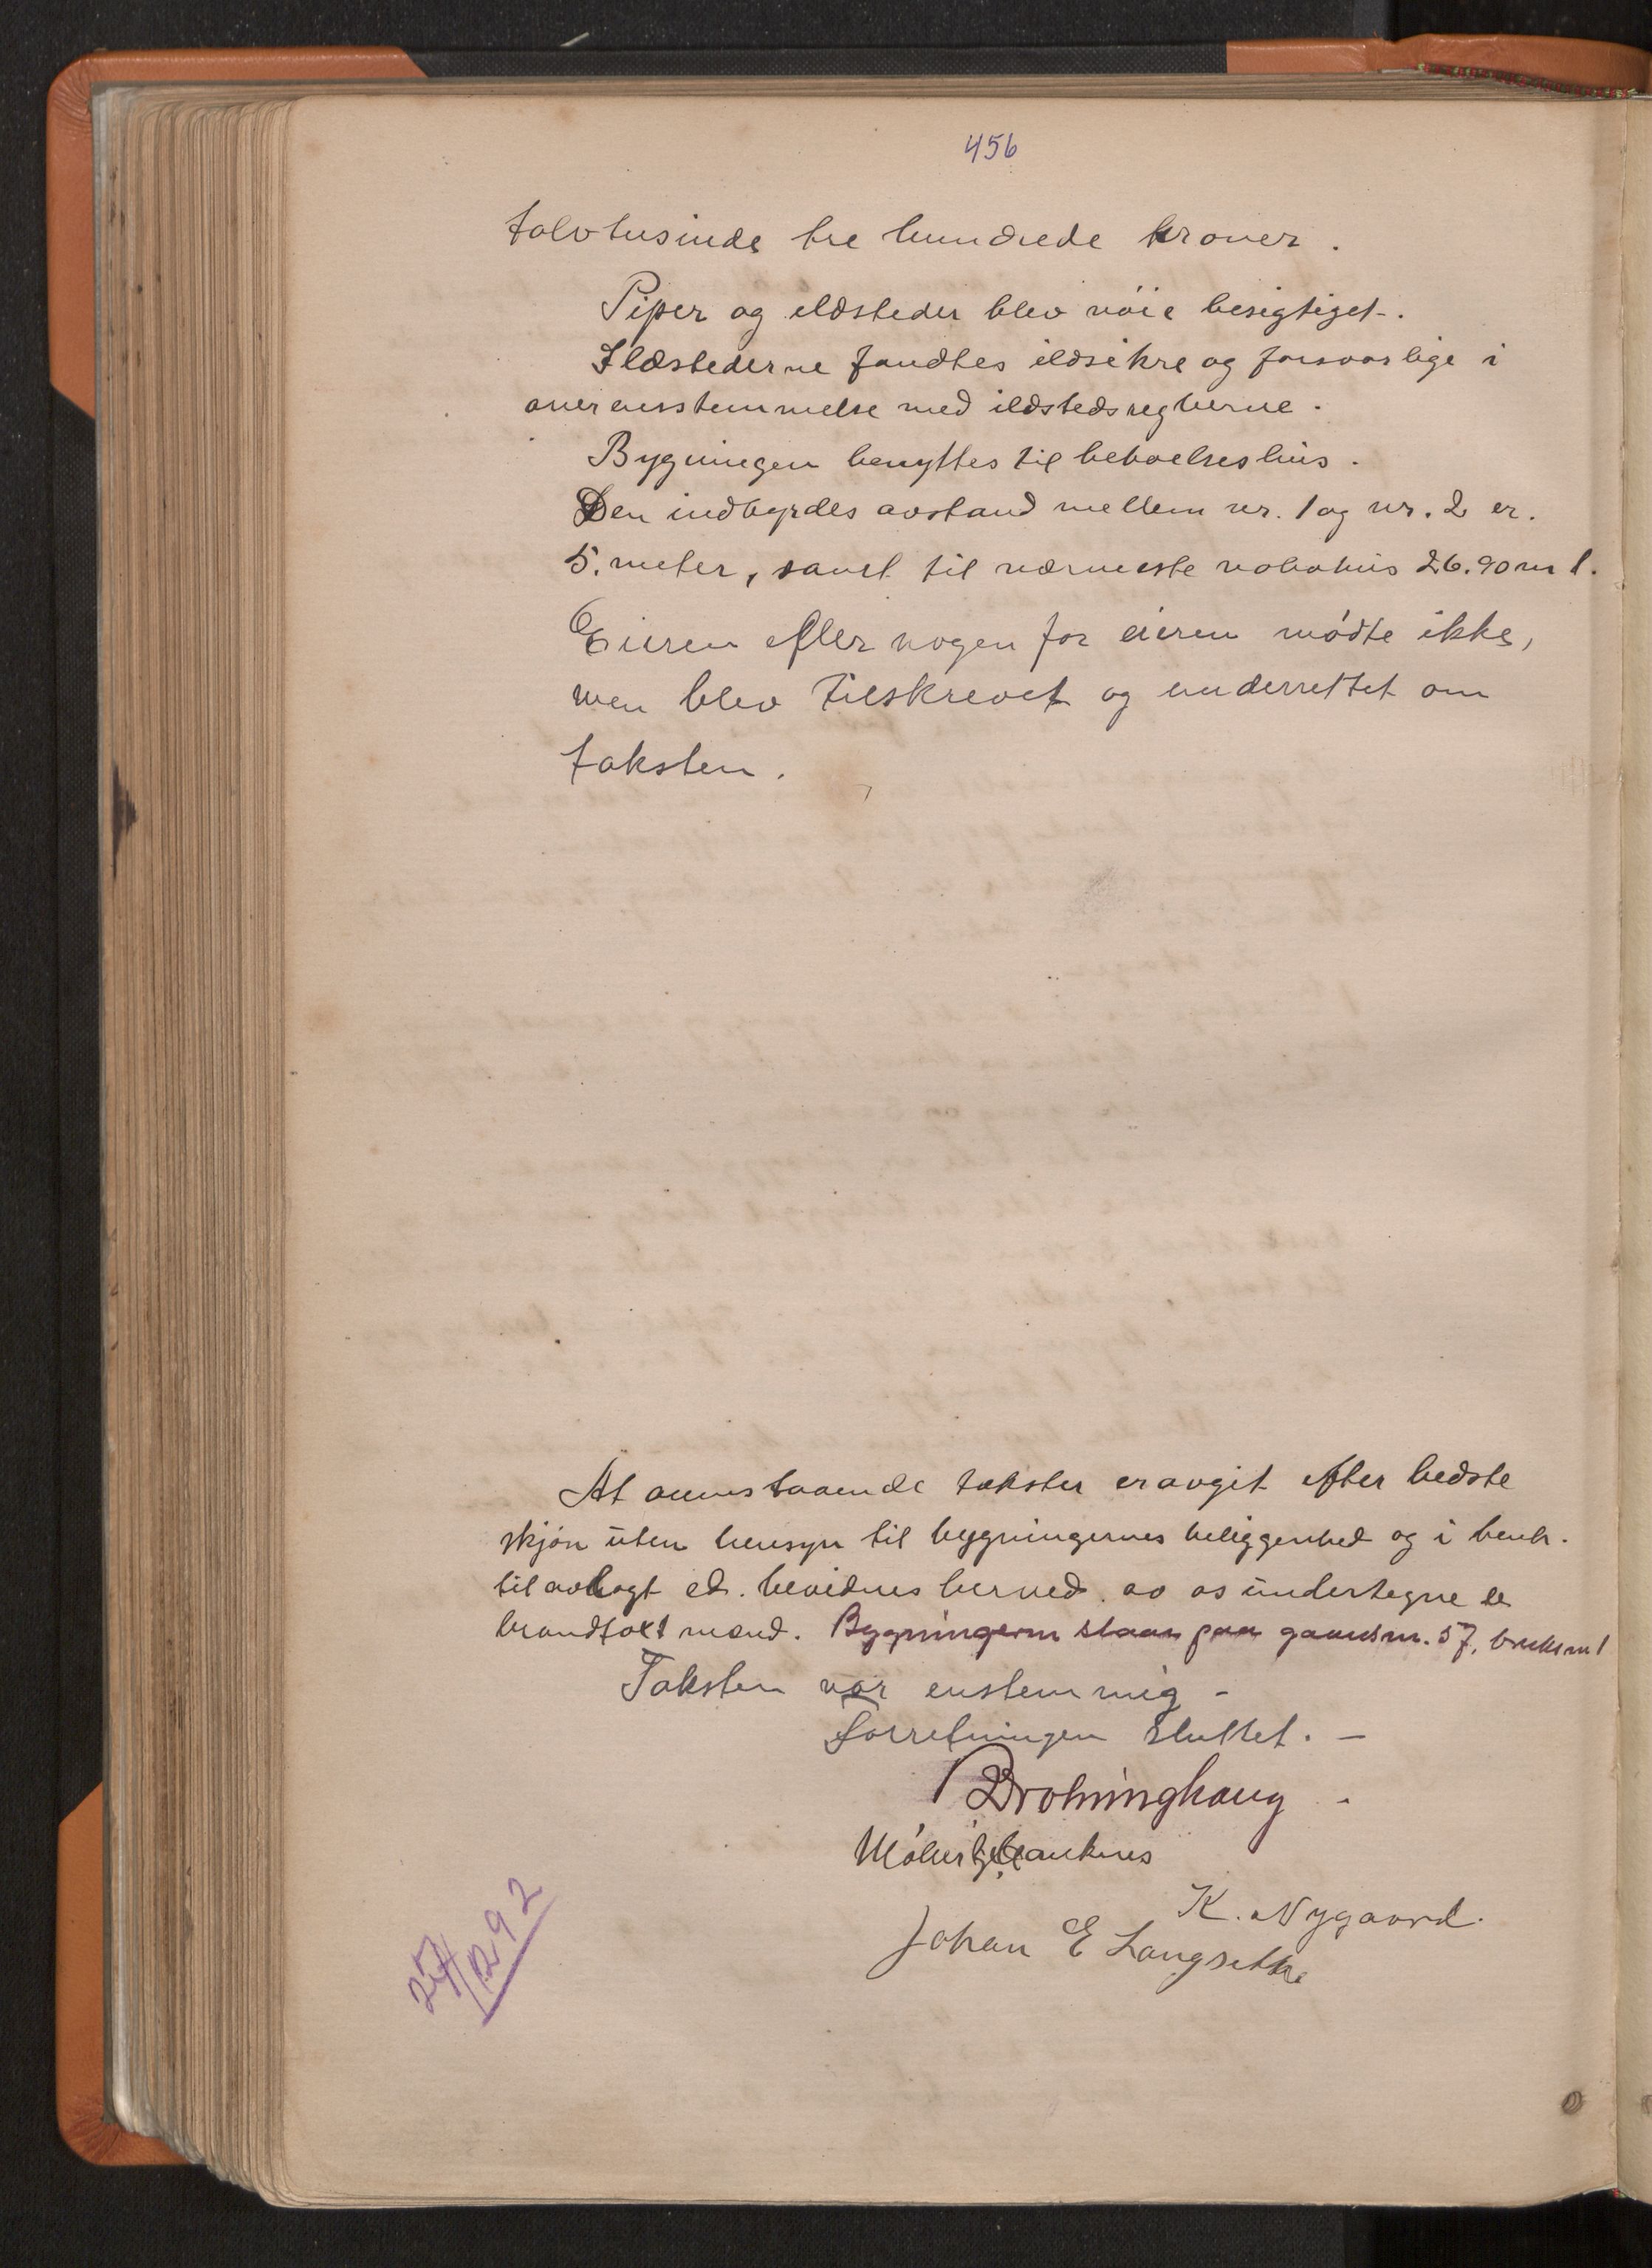 456
tolvtusinde tre hundrede kroner.
Piper og ildsteder blev nöie besigtiget.
Ildstederne fandtes ildsikre og forsvarlige i
overensstemmelse med ildstedsreglerne.
Bygningen benyttes til beboelseshus.
Den indbyrdes avstand mellem nr. 1 og nr. 2 er.
5. meter, samt til nærmeste nabohus 26.90 m l.
Eieren eller nogen for eieren mødte ikke,
men blev tilskrevet og underrettet om
taksten.
At ovenstaaende takster er avgit efter bedste
skjøn uten hensyn til bygningernes beliggenhed og i henh.
til avlagt ed. bevidnes herved av os undertegnede
brandtakstmænd. Bygningerne staar paa gaardsnr. 57, bruksnr 1
Taksten var enstemmig –
Forretningen sluttet. –
K. Nygaard.
Johan E Langsethe